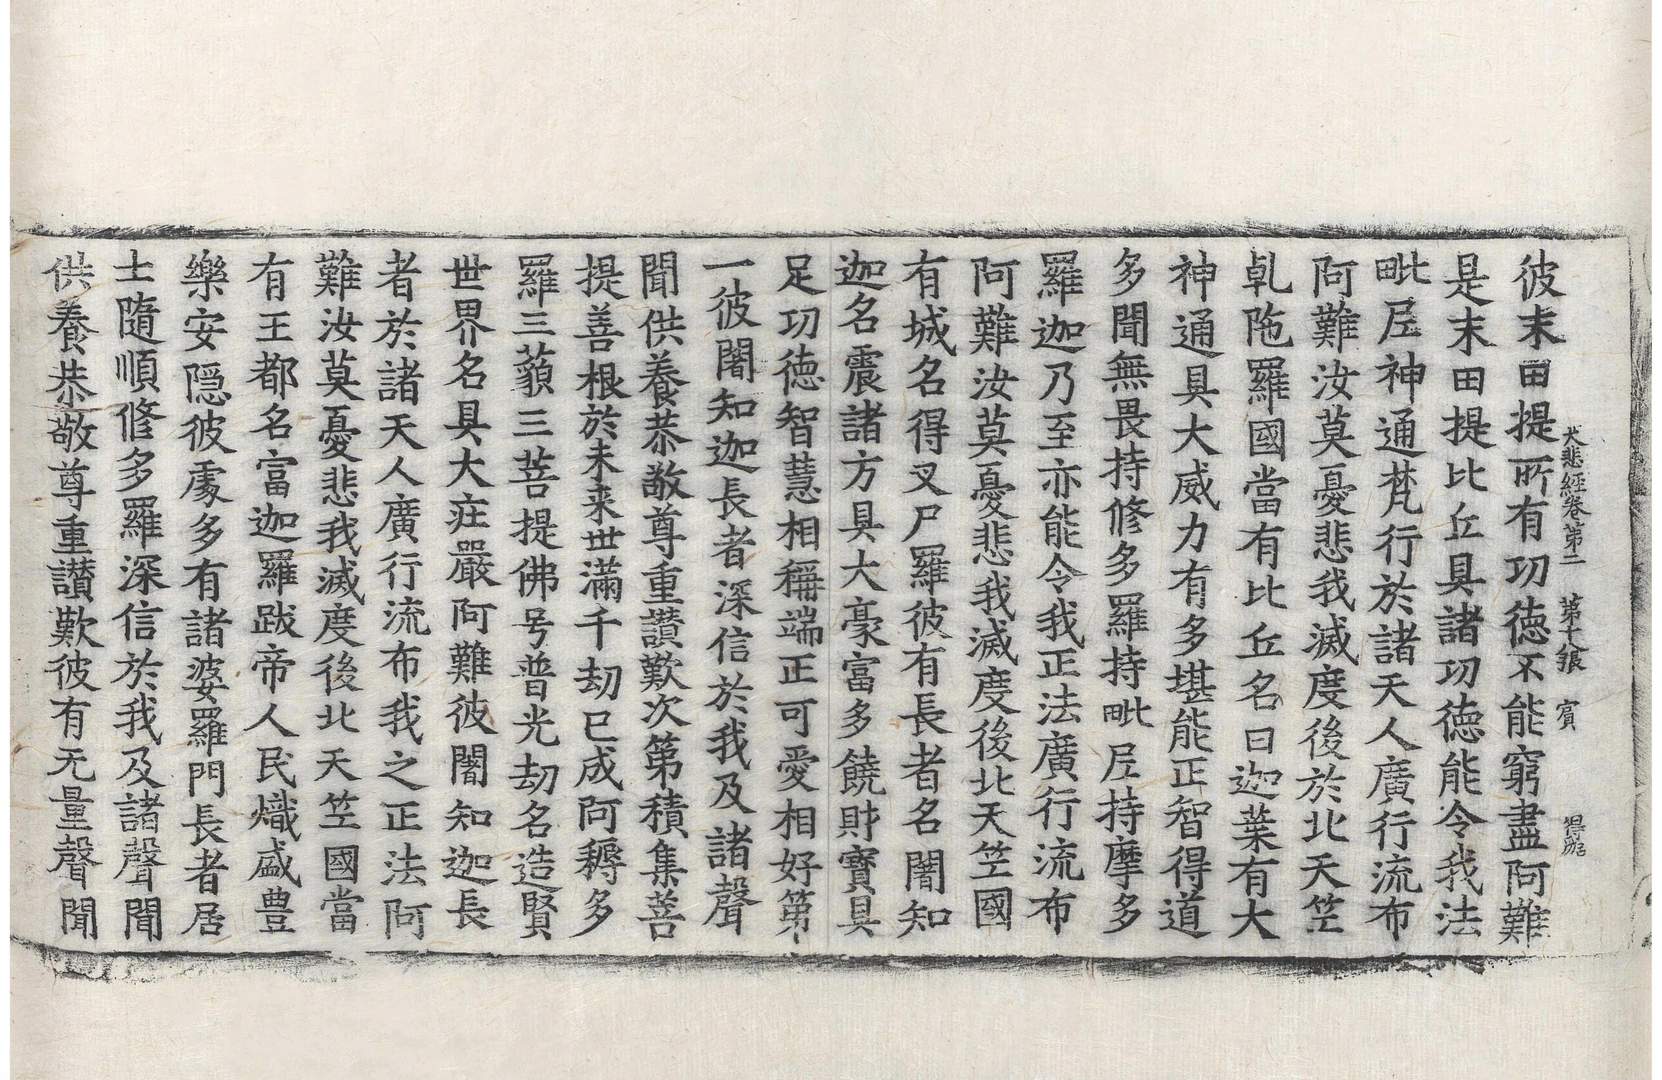 大悲經卷第二 第十張 賓
彼末田提所有功德不能窮盡阿難
是末田提比丘具諸功德能令我法
毗𡰱神通梵行於諸天人廣行流布
阿難汝莫憂悲我滅度後於北天竺
乹陁羅國當有比丘名曰迦葉有大
神通具大威力有多堪能正智得道
多聞無畏持修多羅持毗𡰱持摩多
羅迦乃至亦能令我正法廣行流布
阿難汝莫憂悲我滅度後北天竺國
有城名得叉尸羅彼有長者名闍知
迦名震諸方具大豪富多饒財寶具
足功德智慧相稱端正可愛相好第
一彼闍知迦長者深信於我及諸聲
聞供養恭敬尊重讃歎次第積集菩
提善根於未来世滿千劫已成阿耨多
羅三藐三菩提佛号普光劫名造賢
世界名具大莊嚴阿難彼闍知迦長
者於諸天人廣行流布我之正法阿
難汝莫憂悲我滅度後北天竺國當
有王都名富迦羅跋帝人民熾盛豊
樂安隱彼處多有諸婆羅門長者居
士隨順修多羅深信於我及諸聲聞
供養恭敬尊重讃歎彼有无量聲聞